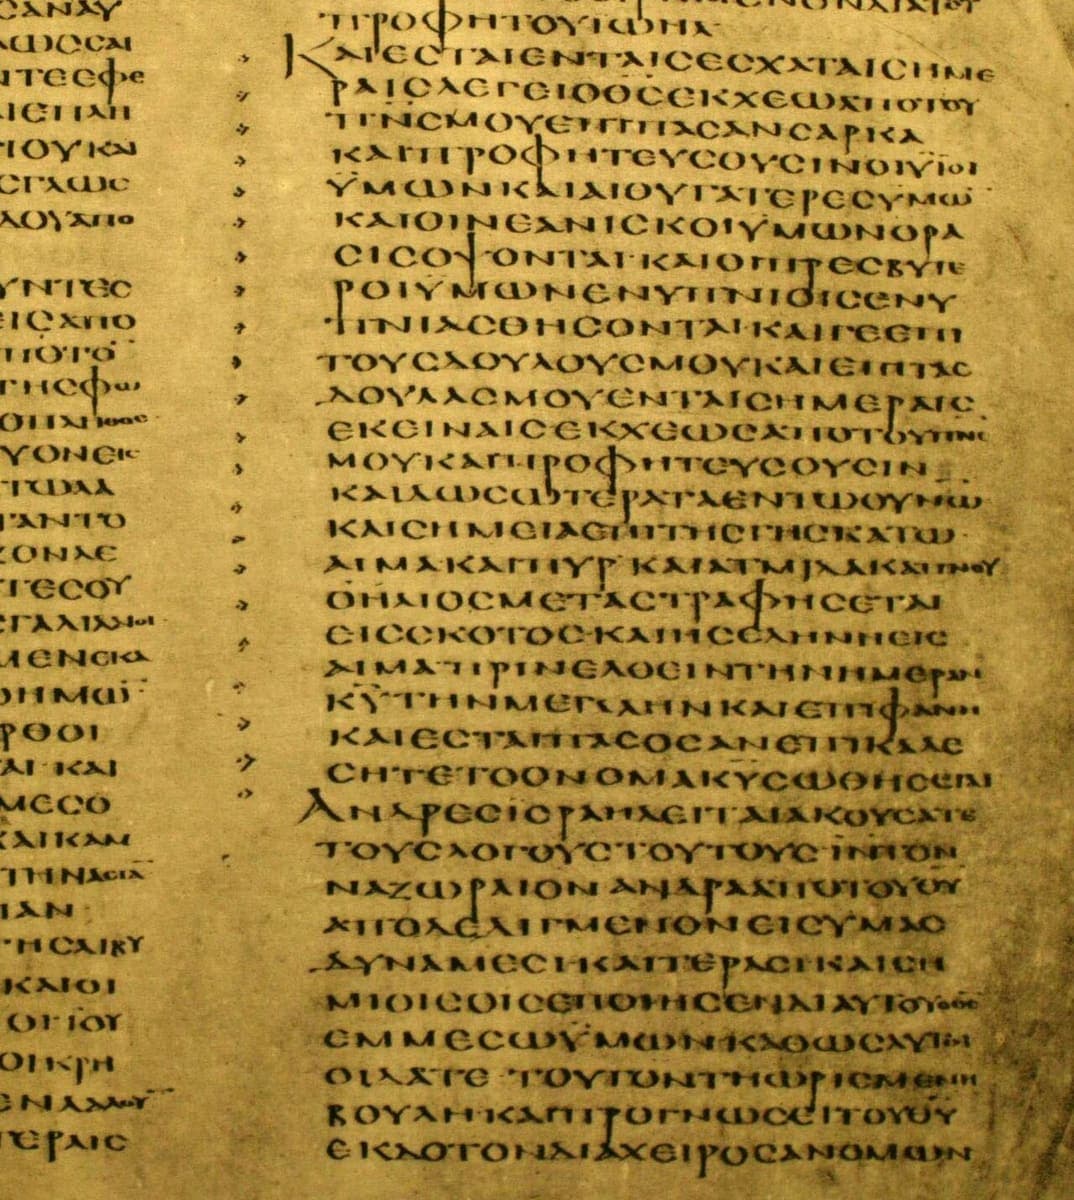 ϹΑΝΑΥ
ΛΩϹϹΑΙ
ΙΕΠΛΗ
ΤΟΥΚΑΙ
ϹΓΛΩϹ
ΛΟΥΑΠΟ
ΥΝΤΕϹ
ΕΙϹΑΠΟ
ΠΟΤΟ̅
ΤΗϹΦΩ
ΥΟΝΕΙϹ
ΤΑΝΤΟ
ΖΟΝΔΕ
ΓΑΛΙΛΑΙΟΙ
ΜΕΝΕΚΑ
ΗΜΩ̅
ΡΘΟΙ
ΑΙ·ΚΑΙ
ΜΕϹΟ
ΚΑΙΚΑΠ
ΤΗΝΑϹΙΑ̅
ΙΑΝ
ΤΗϹΛΙΒΥ
ΚΑΙΟΙ
ΟΙΚΡΗ
ΤΕΡΑΙϹ
ΠΡΟΦΗΤΟΥΪΩΗΛ
ΚΑΙΕϹΤΑΙΕΝΤΑΙϹΕϹΧΑΤΑΙϹΗΜΕ
ΡΑΙϹΛΕΓΕΙΟΘ̅Ϲ̅ΕΚΧΕΩΑΠΟΤΟΥ
Π̅Ν̅Ϲ̅ΜΟΥΕΠΙΠΑϹΑΝϹΑΡΚΑ
ΚΑΙΠΡΟΦΗΤΕΥϹΟΥϹΙΝΟΙΥΪΟΙ
ΫΜΩΝΚΑΙΑΙΘΥΓΑΤΕΡΕϹΥΜΩ̅
ΚΑΙΟΙΝΕΑΝΙϹΚΟΙΫΜΩΝΟΡΑ
ϹΙϹΟΨΟΝΤΑΙ·ΚΑΙΟΙΠΡΕϹΒΥΤΕ
ΡΟΙΫΜΩΝΕΝΥΠΝΙΟΙϹΕΝΥ
ΠΝΙΑϹΘΗϹΟΝΤΑΙ·ΚΑΙΓΕΕΠΙ
ΤΟΥϹΔΟΥΛΟΥϹΜΟΥΚΑΙΕΠΙΤΑϹ
ΔΟΥΛΑϹΜΟΥΕΝΤΑΙϹΗΜΕΡΑΙϹ
ΕΚΕΙΝΑΙϹΕΚΧΕΩΑΠΟΤΟΥΠ̅Ν̅Ϲ̅
ΜΟΥΚΑΙΠΡΟΦΗΤΕΥϹΟΥϹΙΝ
ΚΑΙΔΩϹΩΤΕΡΑΤΑΕΝΤΩΟΥΝΩ
ΚΑΙϹΗΜΕΙΑΕΠΙΤΗϹΓΗϹΚΑΤΩ·
ΑΙΜΑΚΑΙΠΥΡ·ΚΑΙΑΤΜΙΔΑΚΑΠΝΟΥ
ΟΗΛΙΟϹΜΕΤΑϹΤΡΑΦΗϹΕΤΑΙ
ΕΙϹϹΚΟΤΟϹ·ΚΑΙΗϹΕΛΗΝΗΕΙϹ
ΑΙΜΑ·ΠΡΙΝΕΛΘΕΙΝΤΗΝΗΜΕΡΑΝ
Κ̅Υ̅ΤΗΝΜΕΓΑΛΗΝΚΑΙΕΠΙΦΑΝΗ
ΚΑΙΕϹΤΑΙΠΑϹΟϹΑΝΕΠΙΚΑΛΕ
ϹΗΤΕΤΟΟΝΟΜΑΚ̅Υ̅ϹΩΘΗϹΕΤΑΙ
ΑΝΔΡΕϹΪϹΡΑΗΛΕΙΤΑΙΑΚΟΥϹΑΤΕ
ΤΟΥϹΛΟΓΟΥϹΤΟΥΤΟΥϹ·Ι̅Ν̅ΤΟΝ
ΝΑΖΩΡΑΙΟΝΑΝΔΡΑΑΠΟΤΟΥΘ̅Υ̅
ΑΠΟΔΕΔΙΓΜΕΝΟΝΕΙϹΥΜΑϹ
ΔΥΝΑΜΕϹΙΚΑΙΤΕΡΑϹΙΚΑΙϹΗ
ΜΙΟΙϹΟΙϹΕΠΟΙΗϹΕΝΔΙΑΥΤΟΥΟΘ̅Ϲ̅
ΕΜΜΕϹΩΫΜΩΝ·ΚΑΘΩϹΑΥΤΟΙ
ΟΙΔΑΤΕ·ΤΟΥΤΟΝΤΗΩΡΙϹΜΕΝΗ
ΒΟΥΛΗ·ΚΑΙΠΡΟΓΝΩϹΕΙΤΟΥΘ̅Υ̅
ΕΚΔΟΤΟΝΔΙΑΧΕΙΡΟϹΑΝΟΜΩΝ